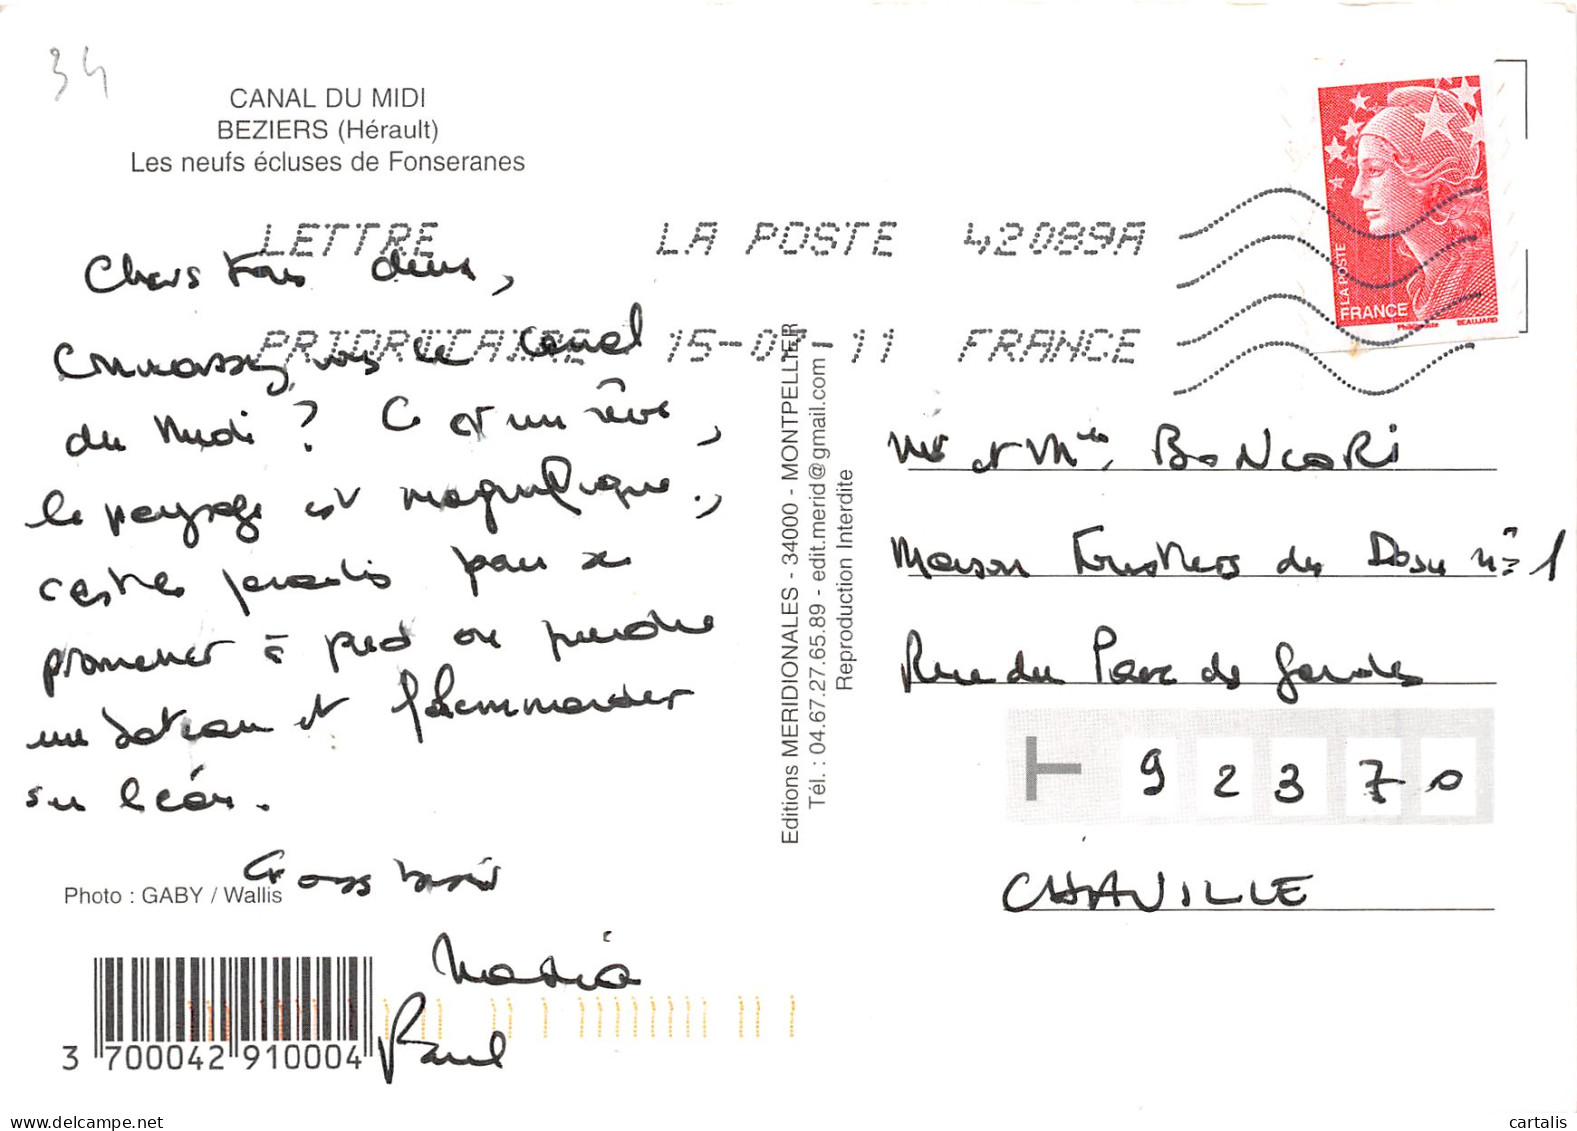 34
CANAL DU MIDI
BEZIERS (Hérault)
Les neufs écluses de Fonseranes
LETTRE LA POSTE 42089A
PRIORITAIRE 15-07-11 FRANCE
LA POSTE
FRANCE
BEAUJARD
Chers tous deux,
Connaissez vous le canal
du Midi ? C'est un rêve,
le paysage est magnifique,
c'est le paradis pour se
promener à pied ou prendre
un bateau et
sur l'eau.
Gros baisers
Maria
Paul
Photo : GABY / Wallis
3 700042 910004
Editions MERIDIONALES - 34000 - MONTPELLIER
Tél. : 04.67.27.65.89 - edit.merid@gmail.com
Reproduction Interdite
Mr et Mme BONCORI
Maison Forestière du n° 1
Rue du Parc de
92370
CHAVILLE
cartalis
delcampe.net